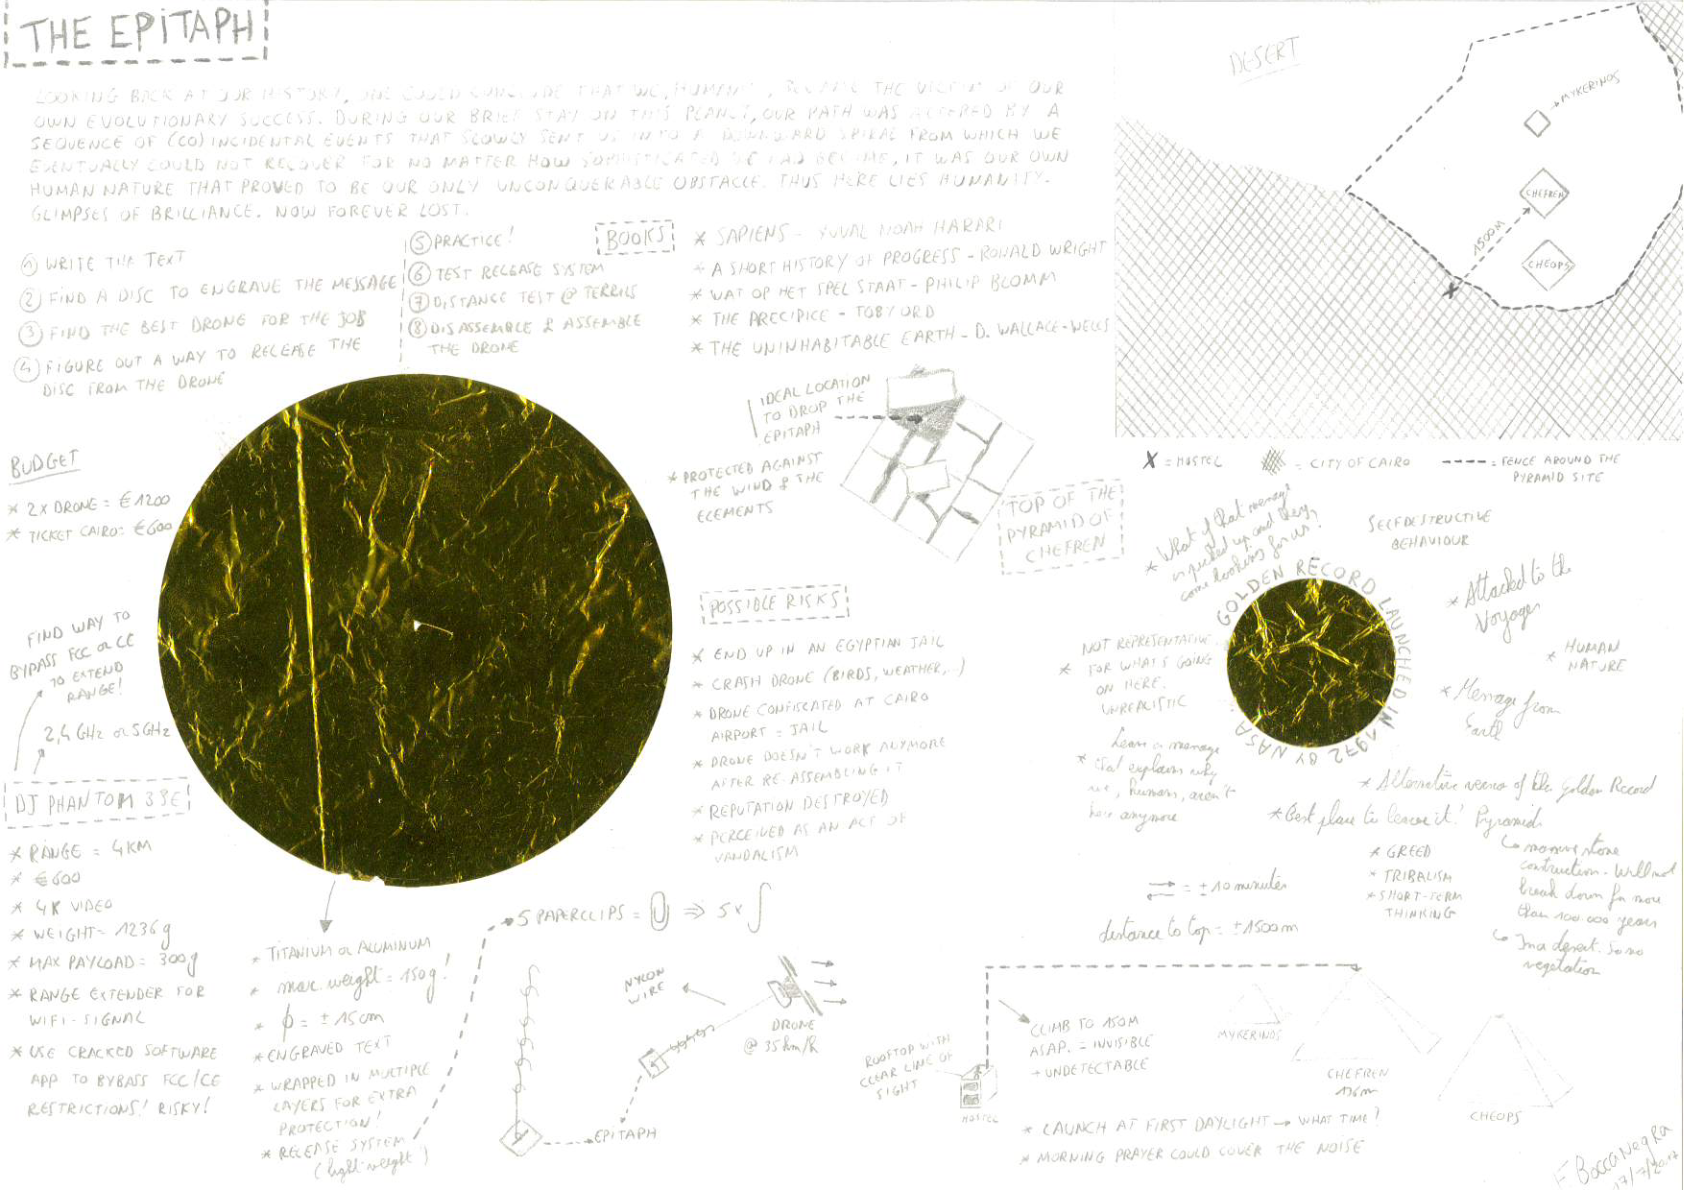 THE EPITAPH
LOOKING BACK AT OUR HISTORY, ONE COULD CONCLUDE THAT WE, HUMANS, BECAME THE VICTIM OF OUR
OWN EVOLUTIONARY SUCCESS. DURING OUR BRIEF STAY ON THIS PLANET, OUR PATH WAS ALTERED BY A
SEQUENCE OF (CO)INCIDENTAL EVENTS THAT SLOWLY SENT US INTO A DOWNWARD SPIRAL FROM WHICH WE
EVENTUALLY COULD NOT RECOVER FOR NO MATTER HOW SOPHISTICATED WE HAD BECOME, IT WAS OUR OWN
HUMAN NATURE THAT PROVED TO BE OUR ONLY UNCONQUERABLE OBSTACLE. THUS HERE LIES HUMANITY.
GLIMPSES OF BRILLIANCE. NOW FOREVER LOST.
① WRITE THE TEXT
② FIND A DISC TO ENGRAVE THE MESSAGE
③ FIND THE BEST DRONE FOR THE JOB
④ FIGURE OUT A WAY TO RELEASE THE
DISC FROM THE DRONE
⑤ PRACTICE!
⑥ TEST RELEASE SYSTEM
⑦ DISTANCE TEST @ TERRILS
⑧ DISASSEMBLE & ASSEMBLE
THE DRONE
BOOKS
* SAPIENS - YUVAL NOAH HARARI
* A SHORT HISTORY OF PROGRESS - RONALD WRIGHT
* WAT OP HET SPEL STAAT - PHILIP BLOMM
* THE PRECIPICE - TOBY ORD
* THE UNINHABITABLE EARTH - D. WALLACE-WELLS
DESERT
→ MYKERINOS
CHEFREN
1500M
CHEOPS
X
X = HOSTEL
= CITY OF CAIRO
= FENCE AROUND THE
PYRAMID SITE
IDEAL LOCATION
TO DROP THE
EPITAPH
* PROTECTED AGAINST
THE WIND & THE
ELEMENTS
TOP OF THE
PYRAMID OF
CHEFREN
BUDGET
* 2x DRONE = €1200
* TICKET CAIRO = €600
FIND WAY TO
BYPASS FCC OR CE
TO EXTEND
RANGE!
2,4 GHz or 5GHz
DJ PHANTOM 3SE
* RANGE = 4KM
* €600
* 4K VIDEO
* WEIGHT = 1236g
* MAX PAYLOAD = 300g
* RANGE EXTENDER FOR
WIFI-SIGNAL
* USE CRACKED SOFTWARE
APP TO BYBASS FCC/CE
RESTRICTIONS! RISKY!
* TITANIUM or ALUMINUM
* max. weight = 150g!
* ϕ = ± 15cm
* ENGRAVED TEXT
* WRAPPED IN MULTIPLE
LAYERS FOR EXTRA
PROTECTION!
* RELEASE SYSTEM
(light weight)
5 PAPERCLIPS = ⇒ 5x
NYLON
WIRE
DRONE
@ 35km/h
EPITAPH
POSSIBLE RISKS
* END UP IN AN EGYPTIAN JAIL
* CRASH DRONE (BIRDS, WEATHER,..)
* DRONE CONFISCATED AT CAIRO
AIRPORT = JAIL
* DRONE DOESN'T WORK ANYMORE
AFTER RE-ASSEMBLING IT
* REPUTATION DESTROYED
* PERCEIVED AS AN ACT OF
VANDALISM
* What if that message
is picked up and they
come looking for us?
SELFDESTRUCTIVE
BEHAVIOUR
GOLDEN RECORD LAUNCHED IN 1972 BY NASA
* Attached to the
Voyager
* HUMAN
NATURE
* Message from
Earth
NOT REPRESENTATIVE
* FOR WHAT'S GOING
ON HERE.
UNREALISTIC
* Leave a message
that explains why
we, humans, aren't
here anymore
* Alternative version of the Golden Record
* Best place to leave it! Pyramids
massive stone
construction. Will not
break down for more
than 100 000 years
In a desert. So no
vegetation
* GREED
* TRIBALISM
* SHORT-TERM
THINKING
= ± 10 minutes
distance to top = ± 1500m
ROOFTOP WITH
CLEAR LINE OF
SIGHT
HOSTEL
CLIMB TO 150M
ASAP. = INVISIBLE
+ UNDETECTABLE
MYKERINOS
CHEFREN
136m
CHEOPS
* LAUNCH AT FIRST DAYLIGHT → WHAT TIME?
* MORNING PRAYER COULD COVER THE NOISE
F BoccaNegRa